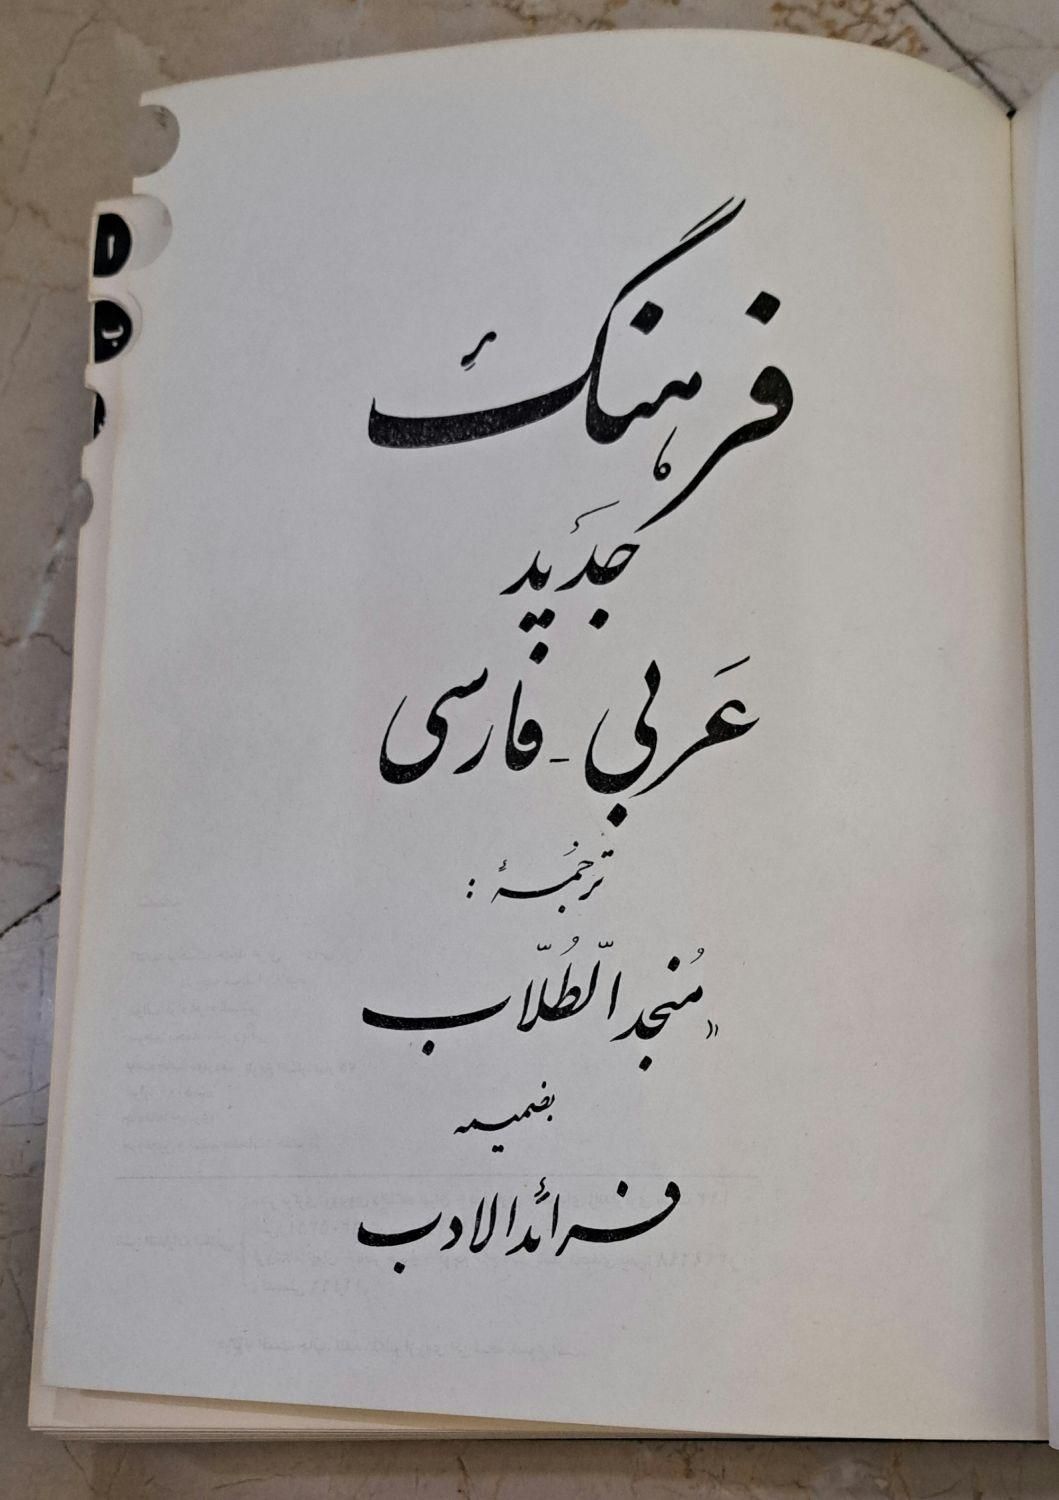 فرهنگ
جدید
عَربی - فارسی
ترجُمهٔ :
«مُنجد الطُّلّاب
بضمیمه
فرائد الادب
ا
ب